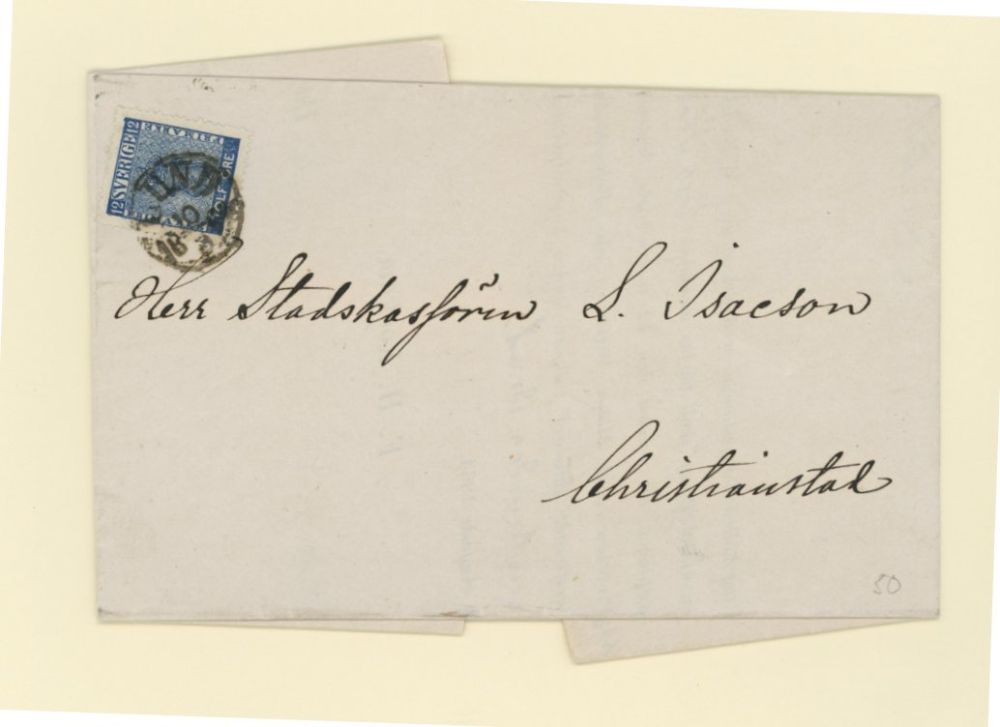 12 SVERIGE 12
FRIMÄRKE
TOLF ÖRE
LUND
10
18
Herr Stadskassören L. Isacson
Christianstad
50